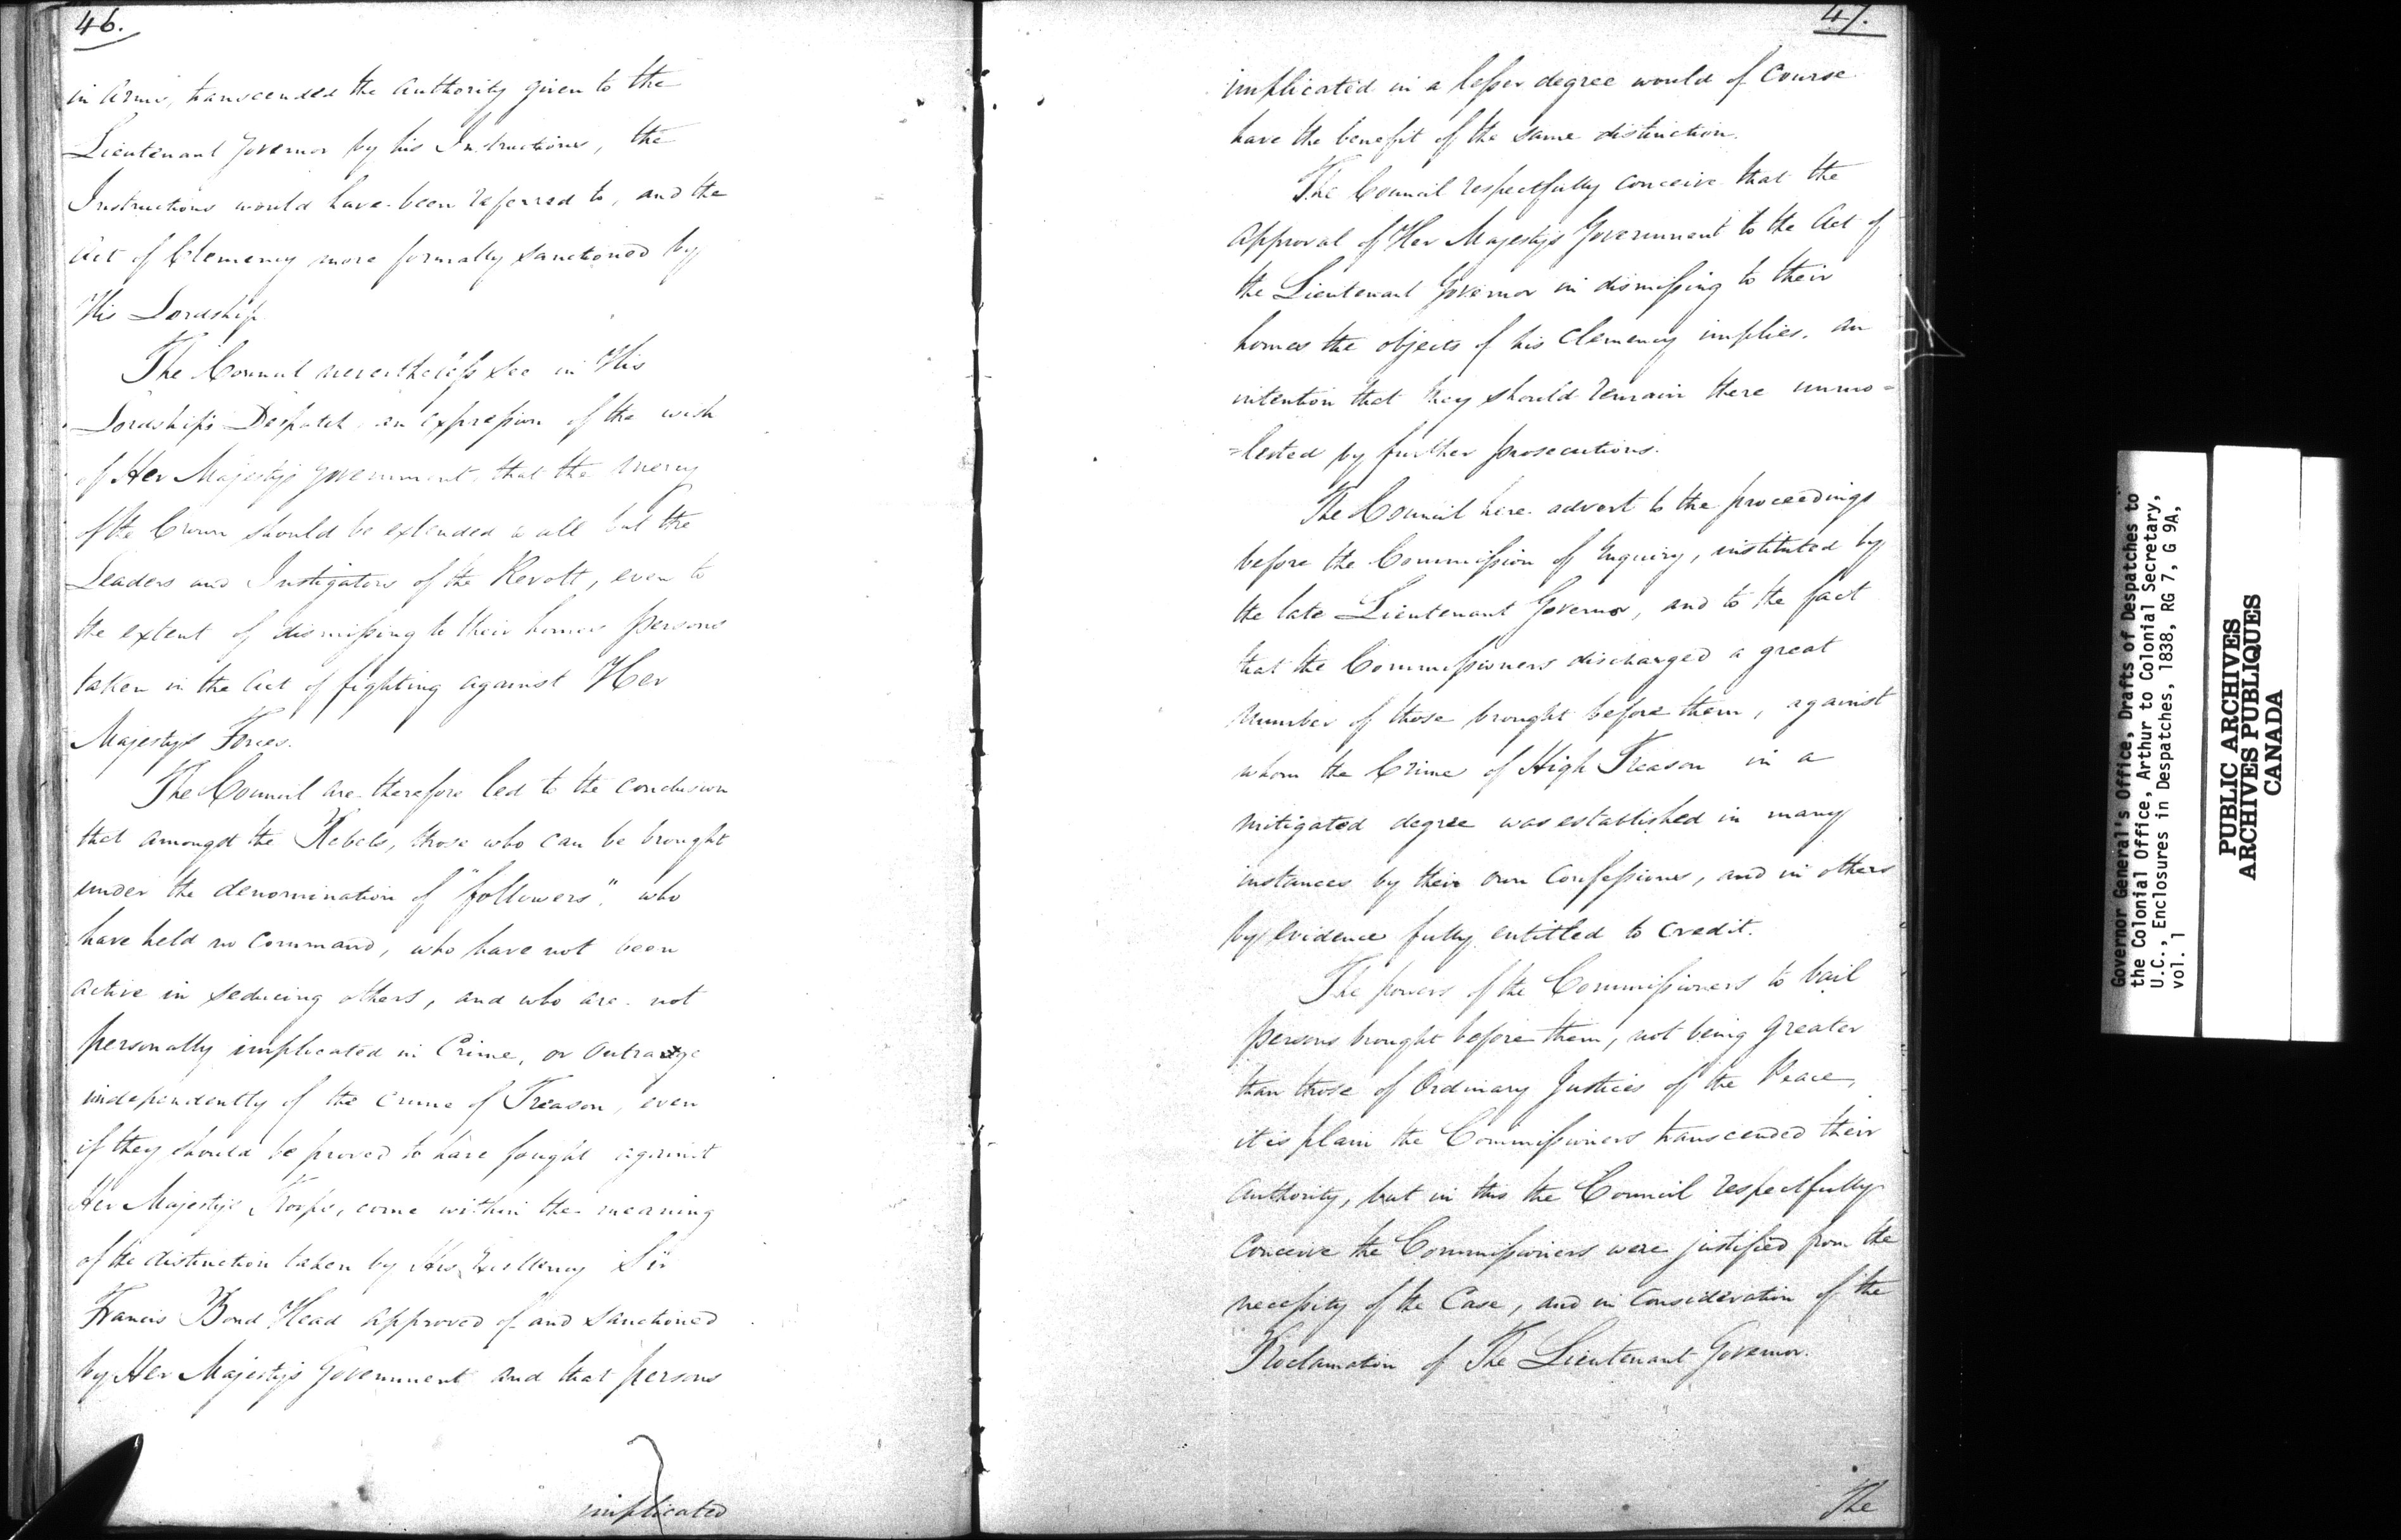 46.
in Arms, transcended the Authority given to the
Lieutenant Governor by his Instructions, the
Instructions would have been referred to, and the
Act of Clemency more formally sanctioned by
His Lordship.
The Council nevertheless see in His
Lordship's Despatch an expression of the wish
of Her Majesty's Government, that the mercy
of the Crown should be extended to all but the
Leaders and Instigators of the Revolt, even to
the extent of dismissing to their homes persons
taken in the Act of fighting against Her
Majesty's Forces.
The Council are therefore led to the conclusion
that amongst the Rebels, those who can be brought
under the denomination of "followers", who
have held no Command, who have not been
active in seducing others, and who are not
personally implicated in Crime, or Outrage
independently of the Crime of Treason, even
if they should be proved to have fought against
Her Majesty's Troops, come within the meaning
of the distinction taken by His Excellency Sir
Francis Bond Head approved of and sanctioned
by Her Majesty's Government and that persons
implicated
47.
implicated in a lesser degree would of Course
have the benefit of the same distinction.
The Council respectfully conceive that the
approval of Her Majesty's Government to the Act of
the Lieutenant Governor in dismissing to their
homes the objects of his Clemency implies, an
intention that they should remain there unmo=
=lested by further prosecutions.
The Council here advert to the proceedings
before the Commission of Inquiry, instituted by
the late Lieutenant Governor, and to the fact
that the Commissioners discharged a great
number of those brought before them, against
whom the Crime of High Treason in a
mitigated degree was established in many
instances by their own Confessions, and in others
by evidence fully entitled to credit.
The powers of the Commissioners to bail
persons brought before them, not being greater
than those of Ordinary Justices of the Peace,
it is plain the Commissioners transcended their
Authority, but in this the Council respectfully
Conceive the Commissioners were justified from the
necessity of the Case, and in Consideration of the
Proclamation of The Lieutenant Governor.
The
Governor General's Office, Drafts of Despatches to
the Colonial Office, Arthur to Colonial Secretary,
U.C., Enclosures in Despatches, 1838, RG 7, G 9A,
vol. 1
PUBLIC ARCHIVES
ARCHIVES PUBLIQUES
CANADA